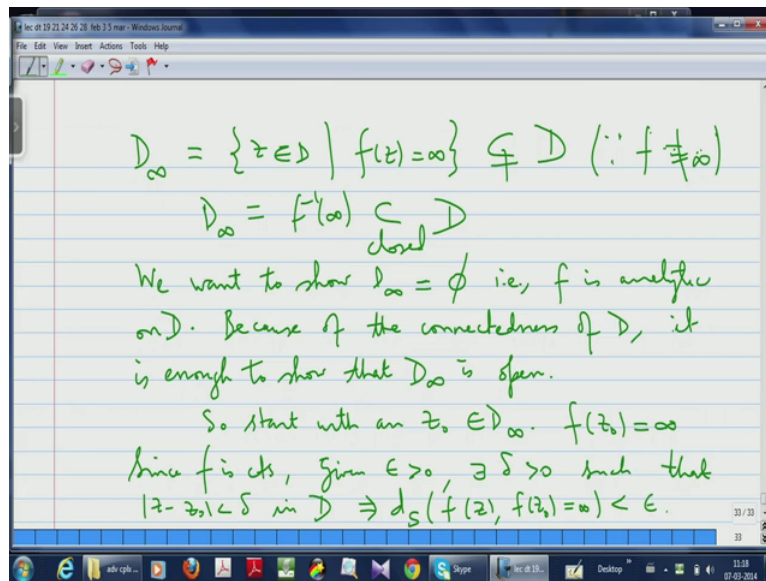 lec dt 19 21 24 26 28 feb 3 5 mar - Windows Journal
File Edit View Insert Actions Tools Help
D∞ = {z ∈ D | f(z) = ∞} ⊊ D (∵ f ≢ ∞)
D∞ = f⁻¹(∞) ⊂ D
closed
We want to show D∞ = ϕ i.e., f is analytic
on D. Because of the connectedness of D, it
is enough to show that D∞ is open.
So start with an z₀ ∈ D∞. f(z₀) = ∞
Since f is cts, given ε > 0, ∃ δ > 0 such that
|z - z₀| < δ in D ⇒ d_S(f(z), f(z₀) = ∞) < ε.
33 / 33
33
adv cplx ... Skype lec dt 19... Desktop 11:18
07-03-2014